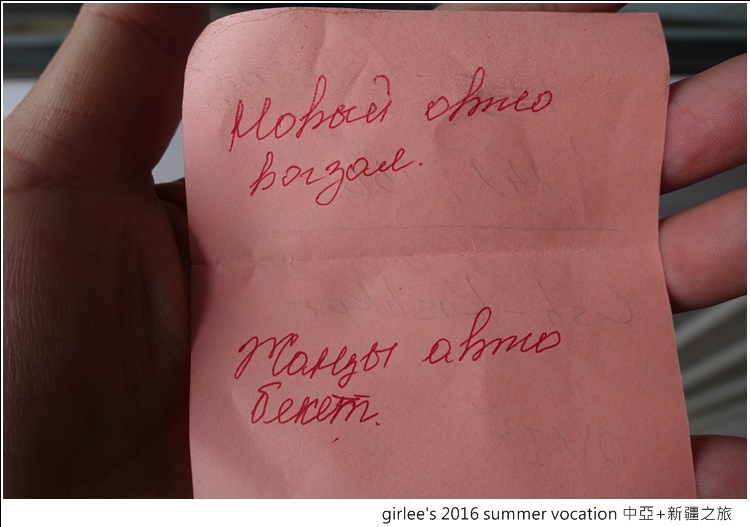 Новый авто
вокзал.
Жаңы авто
бекет.
girlee's 2016 summer vocation 中亞+新疆之旅